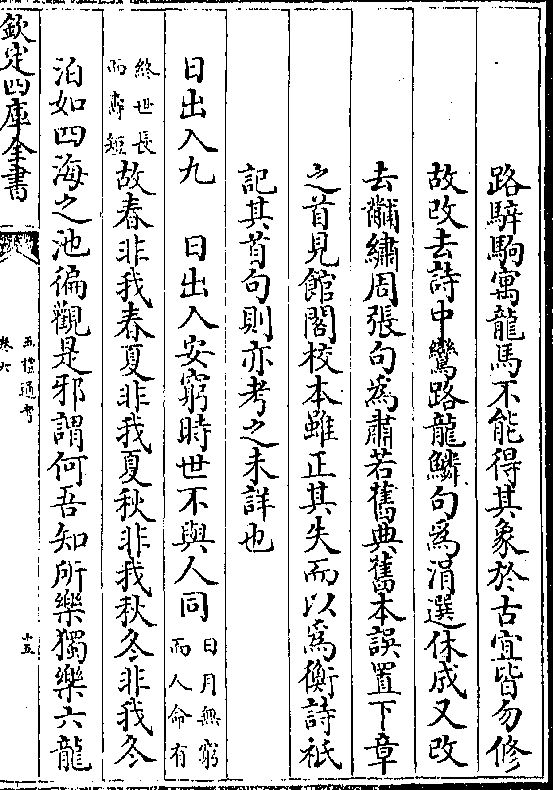 路騂駒寓龍馬不能得其象於古宜皆勿修
故改去詩中鸞路龍鱗句為涓選休成又改
去黼繡周張句為肅若舊典舊本誤置下章
之首見館閣校本雖正其失而以為衡詩祇
記其首句則亦考之未詳也
日出入九 日出入安窮時世不與人同日月無窮而人命有
終世長而壽短故春非我春夏非我夏秋非我秋冬非我冬
泊如四海之池徧觀是邪謂何吾知所樂獨樂六龍
欽定四庫全書
五禮通考
卷六
十五